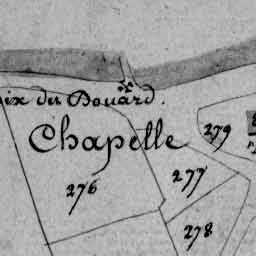 ix du Bouard.
Chapelle
279
276
277
278